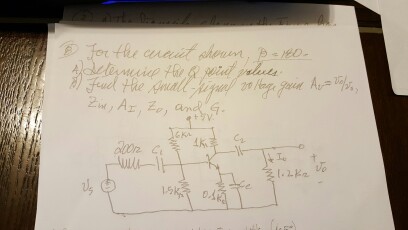 B) For the circuit shown, β = 180.
A) Determine the Q point values.
B) Find the small-signal voltage gain Av = vo/vs,
Zin, AI, Zo, and G.
200Ω
C1
1kΩ
C2
Io
1.2kΩ
vo
vs
0.1kΩ